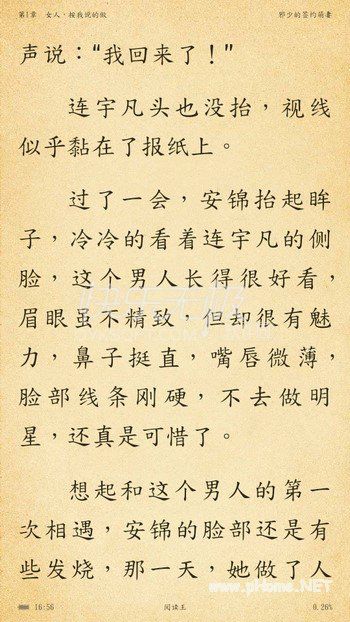 第1章 女人,按我说的做 邪少的签约萌妻
声说:“我回来了!”
连宇凡头也没抬,视线
似乎黏在了报纸上。
过了一会,安锦抬起眸
子,冷冷的看着连宇凡的侧
脸,这个男人长得很好看,
眉眼虽不精致,但却很有魅
力,鼻子挺直,嘴唇微薄,
脸部线条刚硬,不去做明
星,还真是可惜了。
想起和这个男人的第一
次相遇,安锦的脸部还是有
些发烧,那一天,她做了人
www.pHome.NET
16:56 阅读王 0.26%